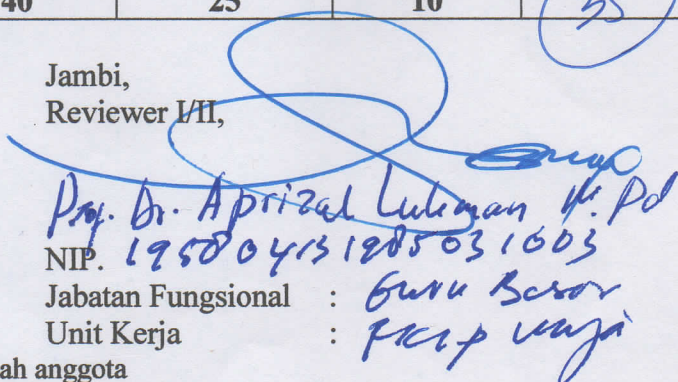 40 25 10 35
Jambi,
Reviewer I/II,
Prof. Dr. Aprizal Lukman M.Pd
NIP. 195804131985031003
Jabatan Fungsional : Guru Besar
Unit Kerja : FKIP Unja
ah anggota